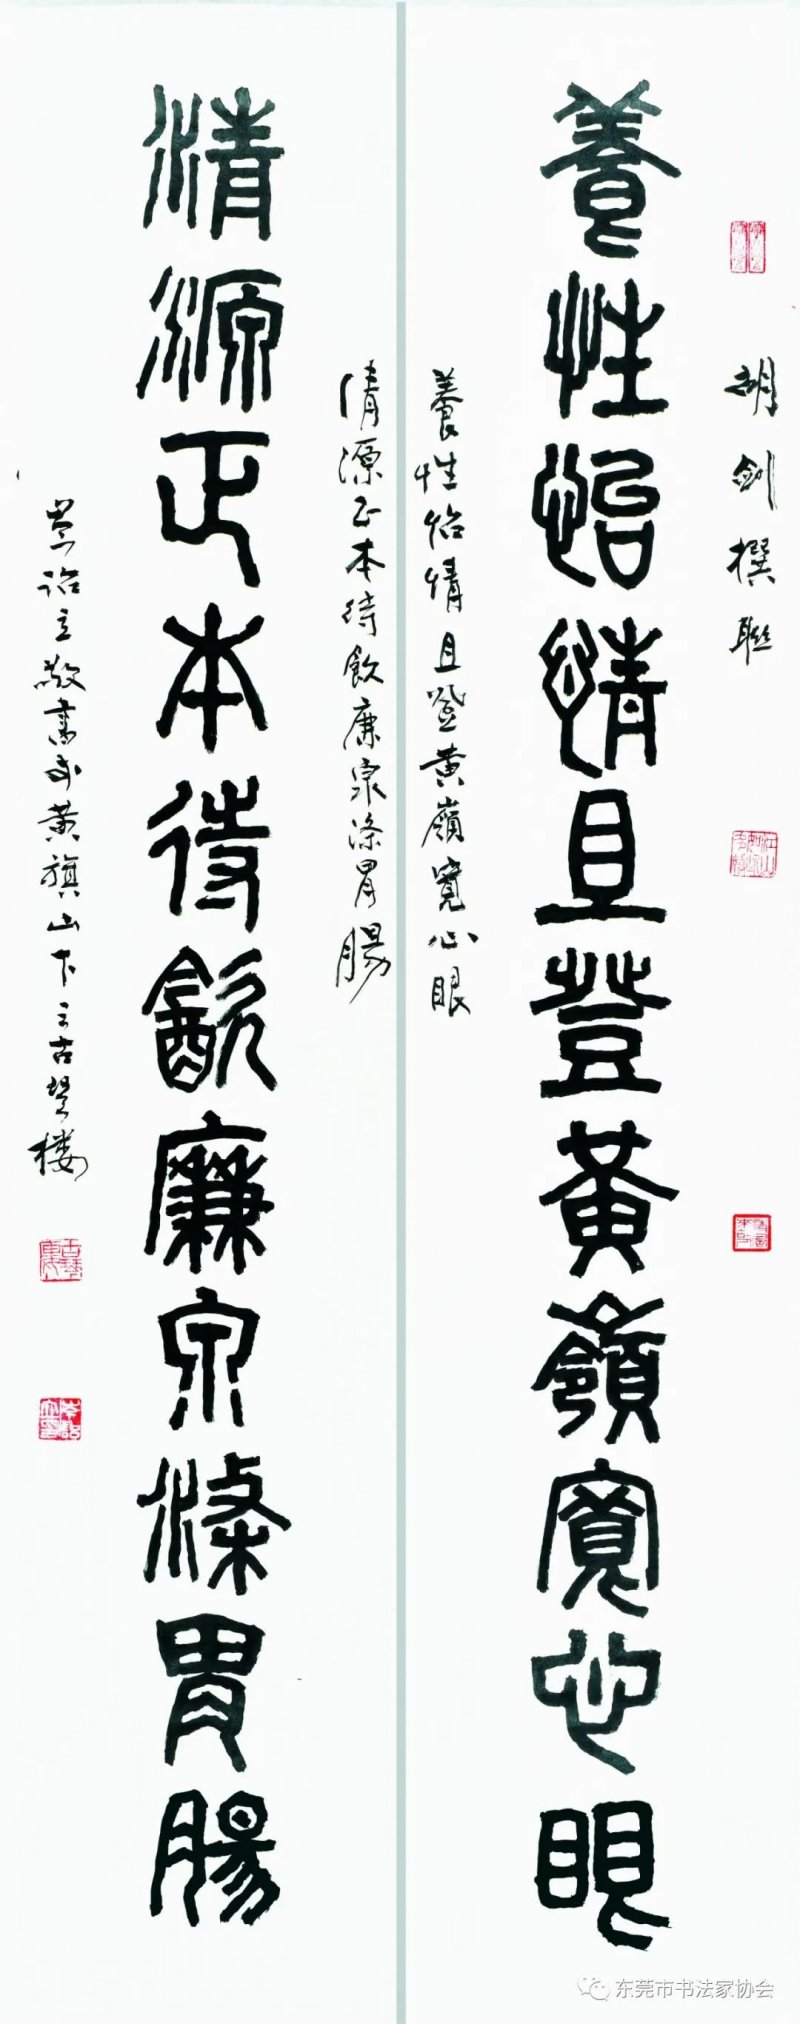 胡剑撰聯
養性怡情且登黄嶺寬心眼
養性怡情且登黄嶺寬心眼
清源正本待飲廉泉滌胃腸
清源正本待飲廉泉滌胃腸
敬書於黄旗山下之古琴樓
东莞市书法家协会